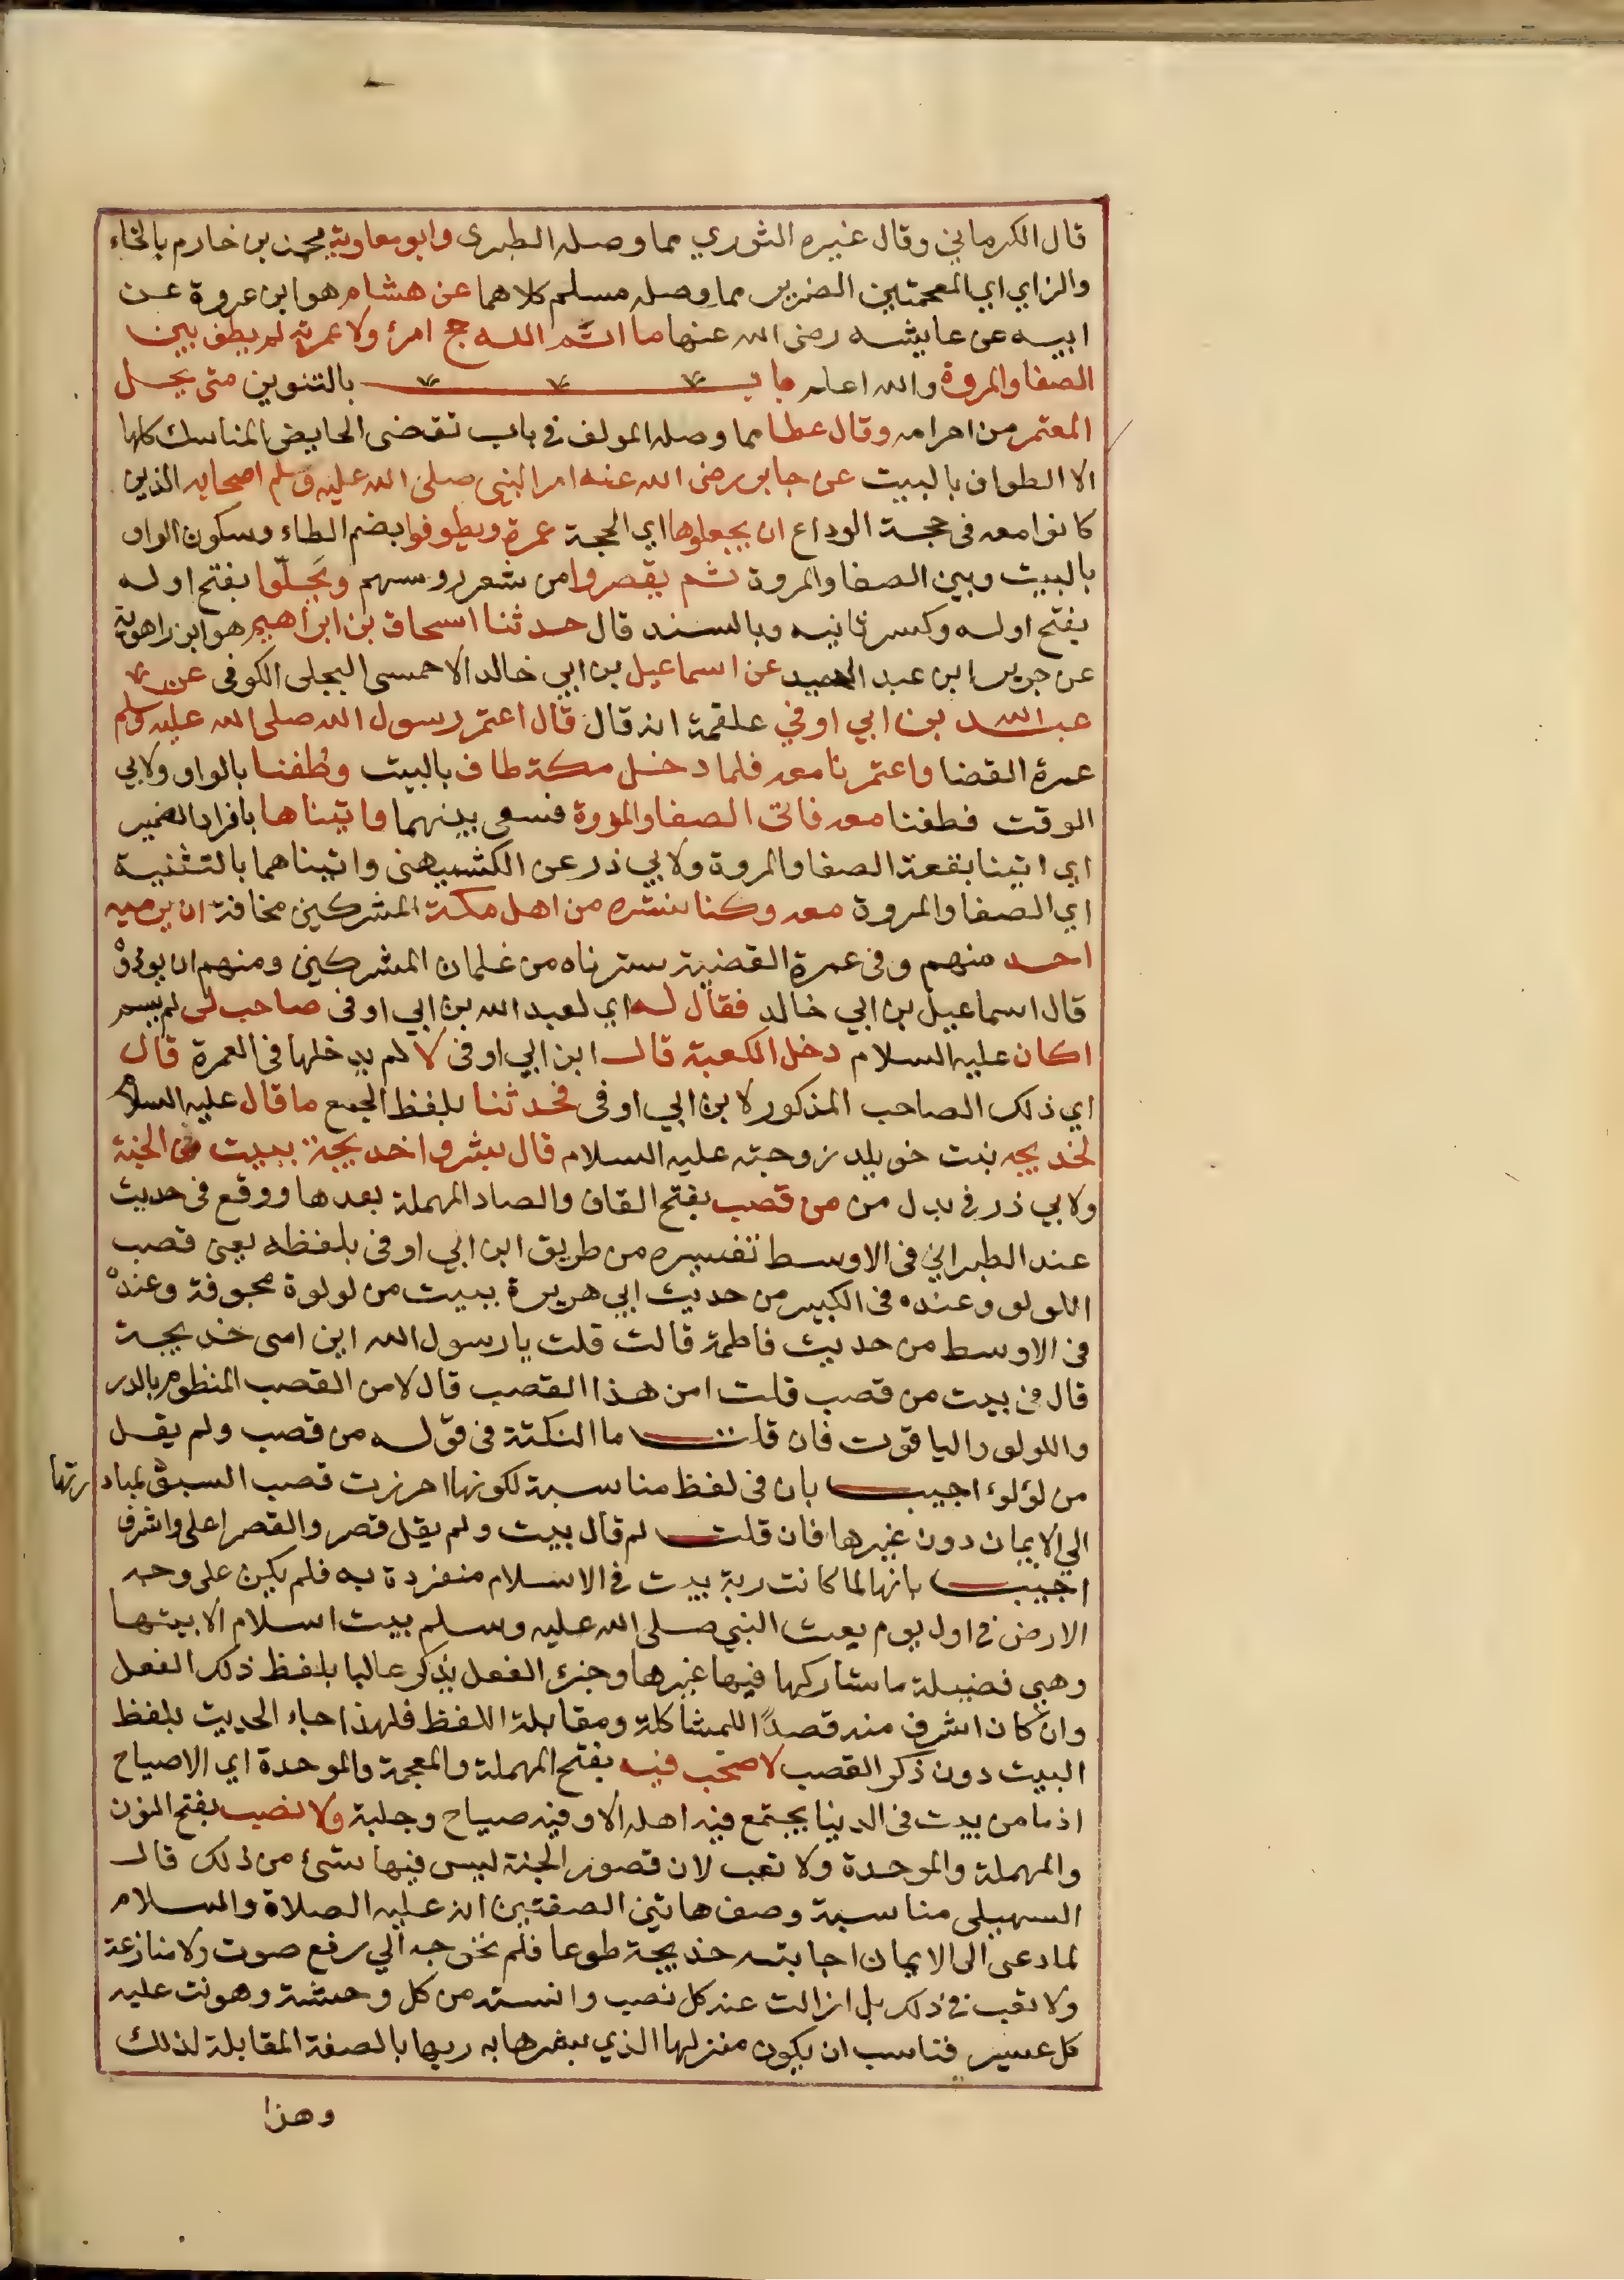 قال الكرماني وقال غيره الثوري مما وصله الطبرى وابو معاوية محمد بن خازم بالخاء
والزاي اي المعجمتين الضرير مما وصله مسلم كلاهما عن هشام هو ابن عروة عن
ابيه عن عايشه رضى الله عنها ما اتم الله حج امرئ ولا عمرته لم يطف بين
الصفا والمروة والله اعلم باب بالتنوين متى يحل
المعتمر من احرامه وقال عطا مما وصله المولف في باب تقضى الحايض المناسك كلها
الا الطواف بالبيت عن جابر رضى الله عنه امر النبي صلى الله عليه وسلم اصحابه الذين
كانوا معه فى حجة الوداع ان يجعلوها اي الحجة عمرة ويطوفوا بضم الطاء وسكون الواو
بالبيت وبين الصفا والمروة ثم يقصروا من شعر روسهم ويَحِلّوا بفتح اوله
بفتح اوله وكسر ثانيه وبالسند قال حدثنا اسحاق بن ابراهيم هو ابن راهوية
عن جرير ابن عبد الحميد عن اسماعيل بن ابي خالد الاحمسى البجلى الكوفى عن
عبد الله بن ابي اوفي علقمة انه قال قال اعتمر رسول الله صلى الله عليه وسلم
عمرة القضا واعتمرنا معه فلما دخل مكة طاف بالبيت وطُفنا بالواو ولابي
الوقت فطفنا معه فاتى الصفا والمروة فسعى بينهما واتيناها بافراد الضمير
اي اتينا بقعة الصفا والمروة ولابي ذر عن الكشميهنى واتيناهما بالتثنية
اي الصفا والمروة معه وكنا نستره من اهل مكة المشركين مخافة ان يرميه
احد منهم وفى عمرة القضية سترناه من غلمان المشركين ومنهم ان يوذوْ
قال اسماعيل بن ابي خالد فقال له اي لعبد الله بن ابي اوفى صاحب لى لم يسم
اكان عليه السلام دخل الكعبة قال ابن ابي اوفى لا لم يدخلها فى العمرة قال
اي ذلك الصاحب المذكور لابن ابي اوفى فحدثنا بلفظ الجمع ما قال عليه السلام
لخديجه بنت خويلد زوجته عليه السلام قال بشروا خديجة ببيت فى الجنة
ولابي ذر فى بدل من من قصب بفتح القاف والصاد المهملة بعدها ووقع فى حديث
عند الطبراني فى الاوسط تفسيره من طريق ابن ابي اوفى بلفظه يعنى قصب
اللولو وعنده فى الكبير من حديث ابي هريرة ببيت من لولوة مجوفة وعندْ
فى الاوسط من حديث فاطمة قالت قلت يا رسول الله اين امى خديجة
قال فى بيت من قصب قلت امن هذا القصب قال لا من القصب المنظوم بالدر
واللولو والياقوت فان قلت ما النكتة فى قوله من قصب ولم يقل
من لؤلوء اجيب بان فى لفظ مناسبة لكونها احرزت قصب السبق لمبادرتها
الي الايمان دون غيرها فان قلت لم قال بيت ولم يقل قصر والقصر اعلى واشرف
اجيب بانها لما كانت ربة بيت فى الاسلام منفردة به فلم يكن على وجه
الارض فى اول يوم بعث النبي صلى الله عليه وسلم بيت اسلام الا بيتها
وهي فضيلة ما شاركها فيها غيرها وجزء الفعل يذكر غالبا بلفظ ذلك الفعل
وان كان اشرف منه قصدًا للمشاكلة ومقابلة اللفظ فلهذا جاء الحديث بلفظ
البيت دون ذكر القصب لا صخب فيه بفتح المهملة والمعجمة والموحدة اي الاصياح
اذ ما من بيت فى الدينا يجتمع فيه اهله الا وفيه صياح وجلبة ولا نصب بفتح النون
والمهملة والموحدة ولا تعب لان قصور الجنة ليس فيها شئ من ذلك قال
السهيلى مناسبة وصف هاتين الصفتين انه عليه الصلاة والسلام
لما دعى الى الايمان اجابته خديجة طوعا فلم تخرجه الي رفع صوت ولا منازعة
ولا تعب فى ذلك بل ازالت عنه كل نصب وانسته من كل وحشة وهونت عليه
كل عسير فناسب ان يكون منزلها الذي بشرها به ربها بالصفة المقابلة لذلك
وهذا